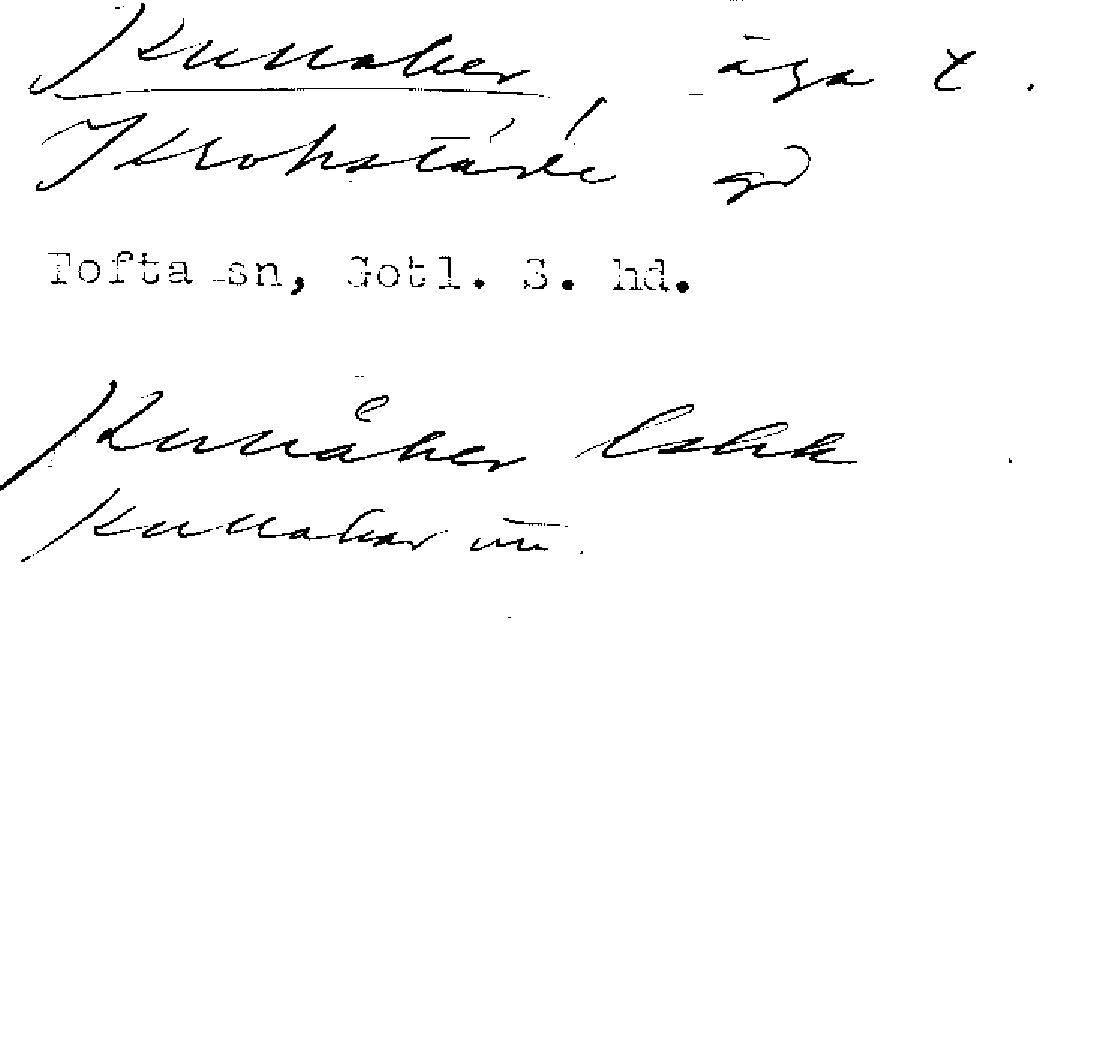 Kunnaker, äga t.
Krokstäde gd
Tofta sn, Gotl. S. hd.
Kunnåker Lskk
Kunnakar uu.